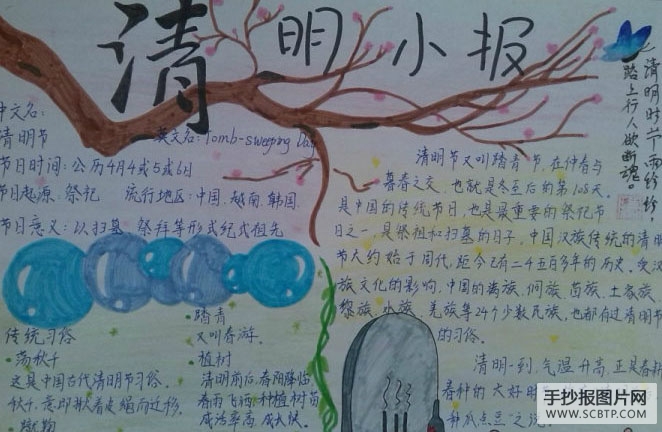 清明小报
清明时节雨纷纷,
路上行人欲断魂。
中文名:
清明节
英文名: Tomb-sweeping Day
节日时间: 公历4月4或5或6日
节日起源: 祭祀 流行地区: 中国、越南、韩国
节日意义: 以扫墓、祭拜等形式纪式祖先
清明节又叫踏青节,在仲春与
暮春之交,也就是冬至后的第108天。
是中国的传统节日,也是最重要的祭祀节
日之一,是祭祖和扫墓的日子。中国汉族传统的清明
节大约始于周代,距今已有二千五百多年的历史。受汉
族文化的影响,中国的满族、侗族、苗族、土家族
黎族、水族、羌族等24个少数民族,也都有过清明节
的习俗。
清明一到,气温升高,正是春耕
春种的大好时
种瓜点豆"之说
传统习俗
·荡秋千
这是中国古代清明节习俗。
秋千,意即揪着皮绳而迁移。
·蹴鞠
·踏青
又叫春游。
·植树
清明前后,春阳降临,
春雨飞洒,种植树苗
成活率高,成长快。
手抄报图片网
WWW.SCBTP.COM